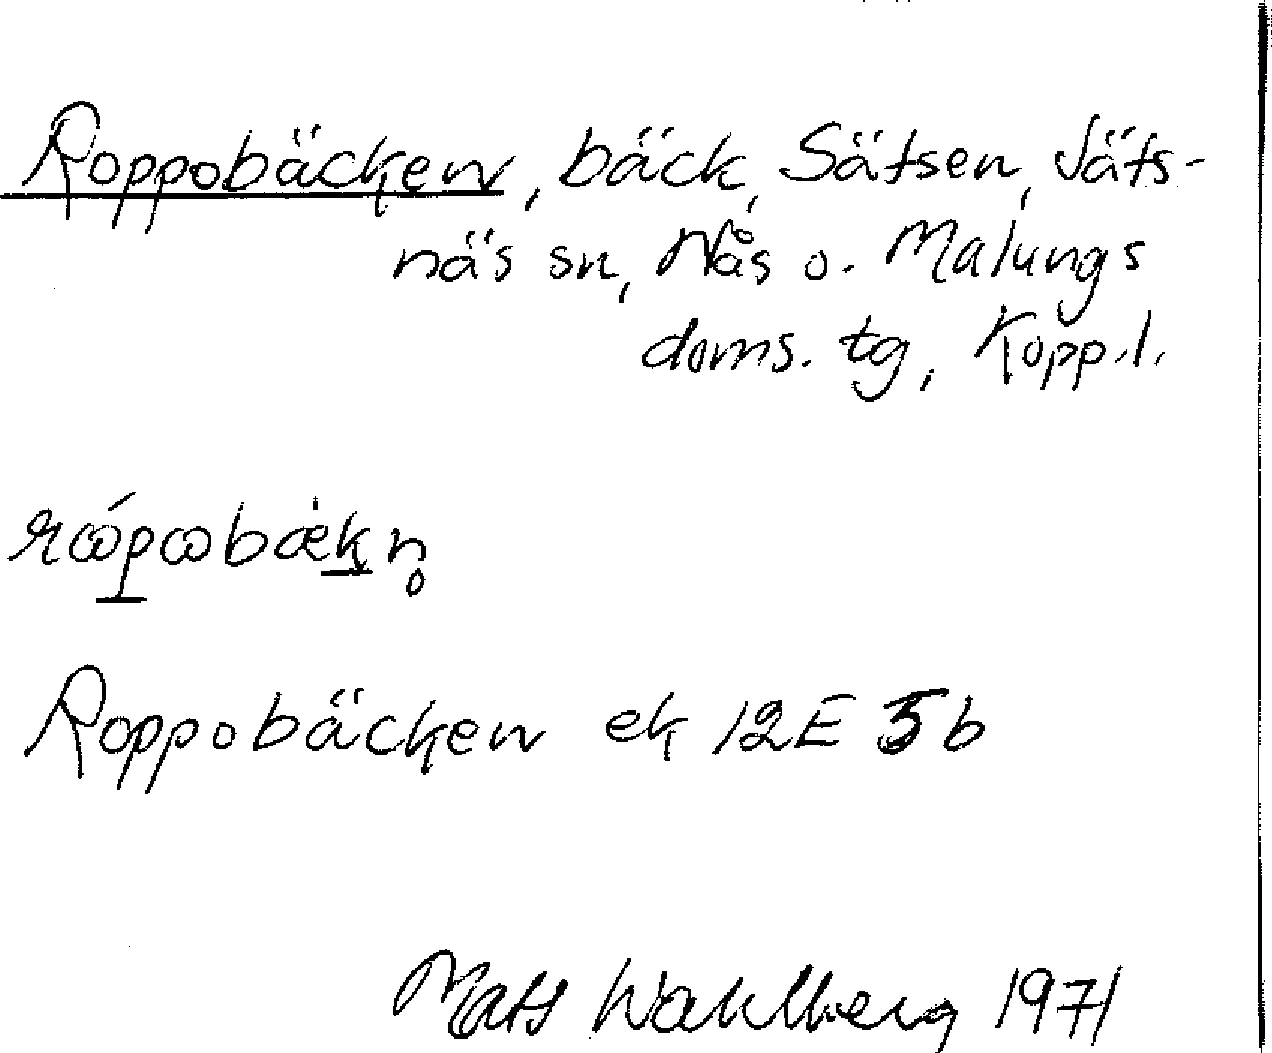 Roppobäcken, bäck, Sätsen, Säfs-
näs sn, Nås o. Malungs
doms. tg, Kopp.l.
Roppobäcken ek 12E 5b
Mats Wahlberg 1971